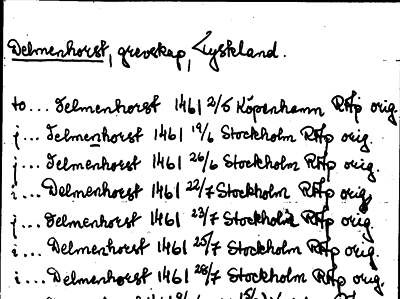 Delmenhorst, grevskap, Tyskland.
to... Delmenhorst 1461 2/6 Köpenhamn RAp orig
j... Delmenhorst 1461 19/6 Stockholm RAp orig.
j... Delmenhorst 1461 26/6 Stockholm RAp orig.
i... Delmenhorst 1461 22/7 Stockholm RAp orig.
j... Delmenhorst 1461 23/7 Stockholm RAp orig.
i... Delmenhorst 1461 25/7 Stockholm RAp orig.
i... Delmenhorst 1461 28/7 Stockholm RAp orig.